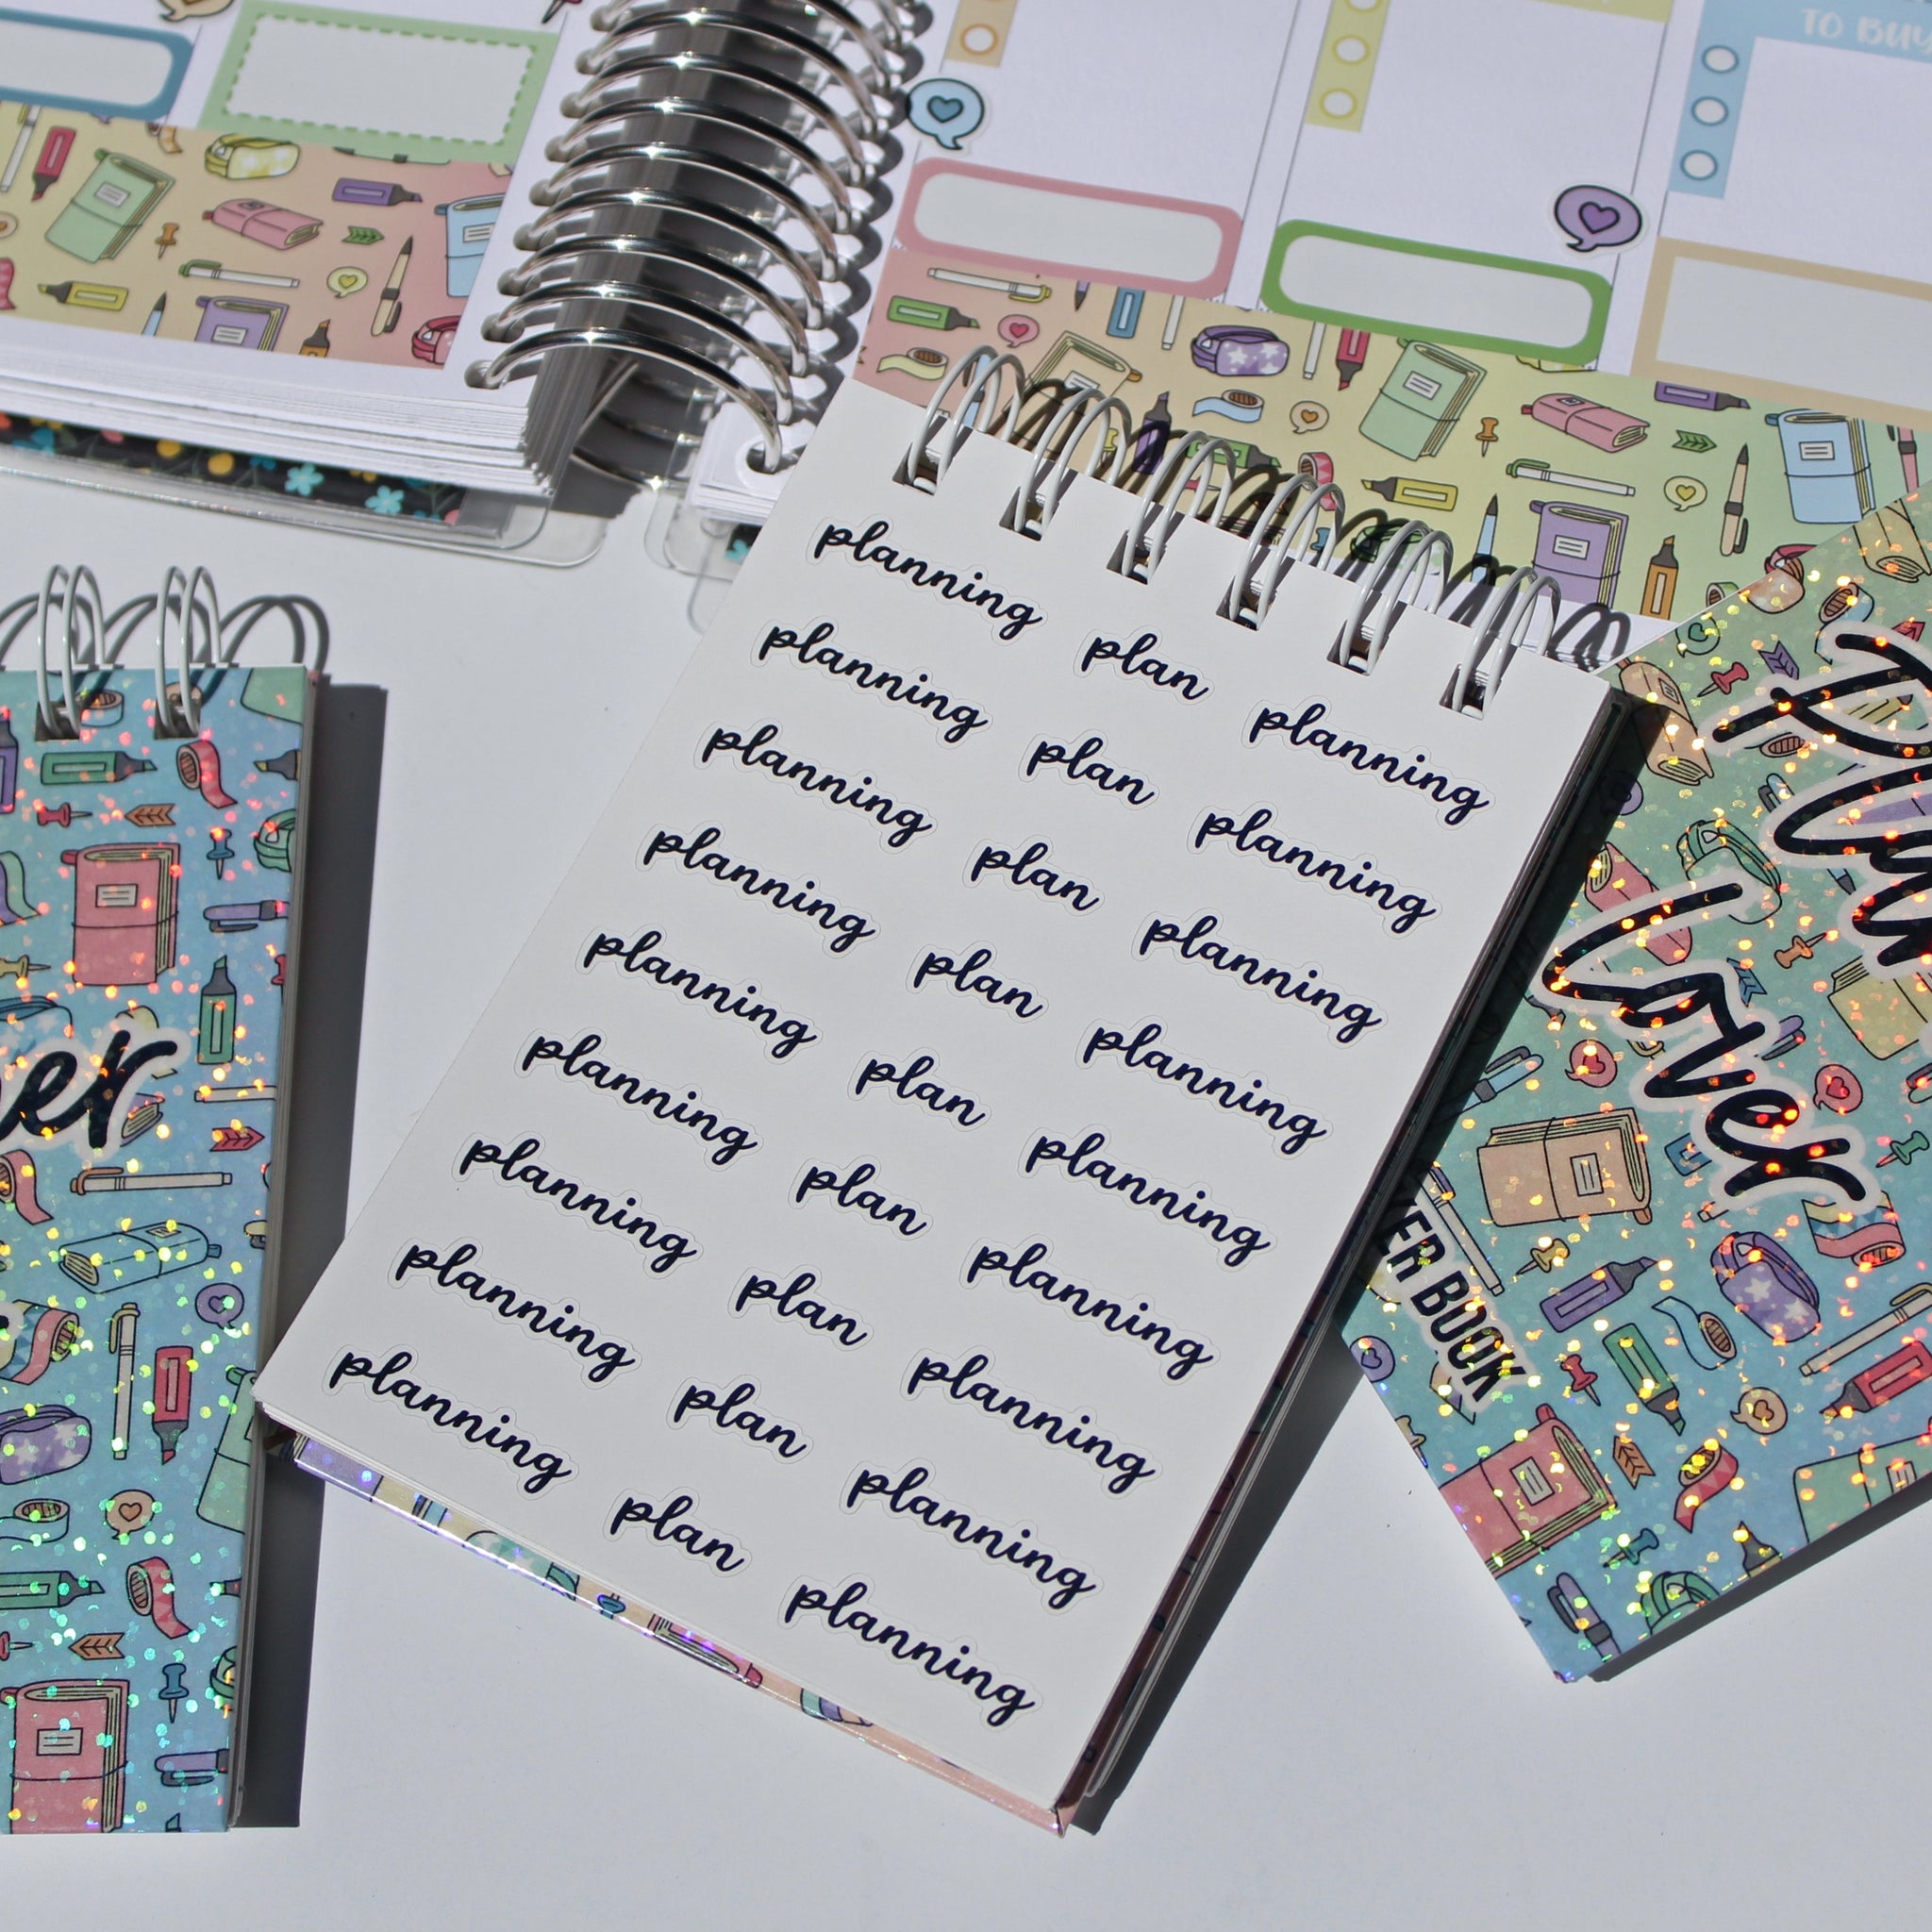 TO BUY
planning plan planning
planning plan planning
planning plan planning
planning plan planning
planning plan planning
planning plan planning
planning plan planning
planning plan planning
planning plan planning
Lover
BOOK